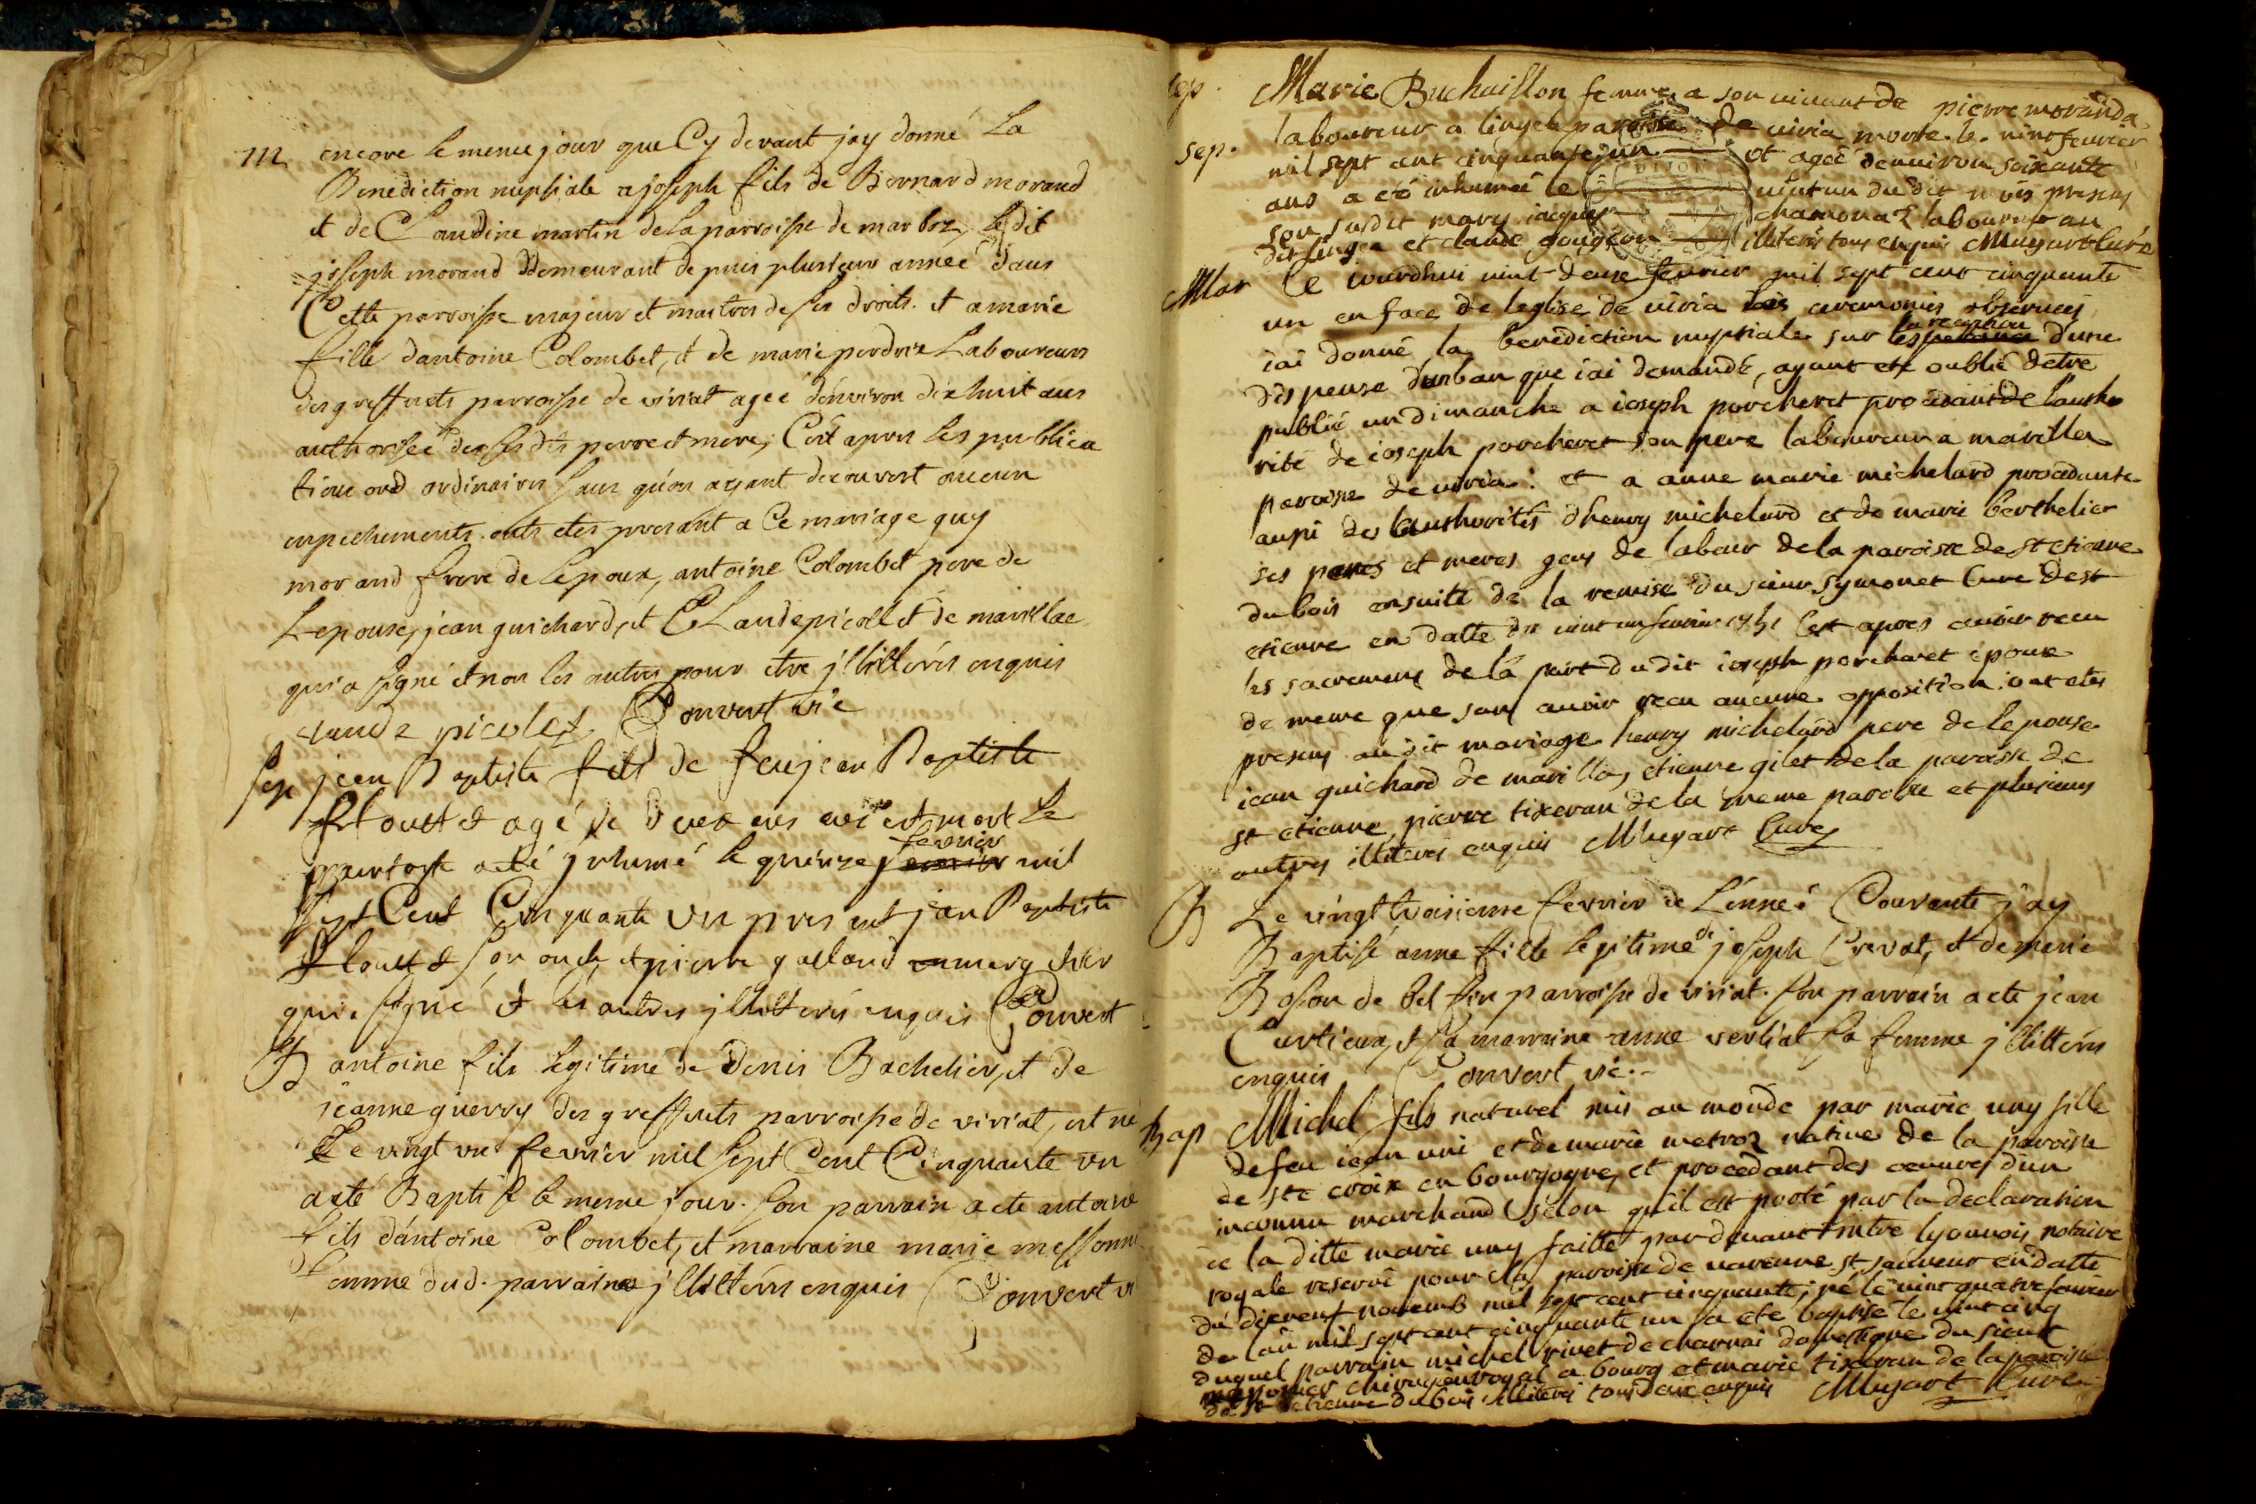 m encore le meme jour que Cy devant jay donné La
Benediction nuptiale a joseph fils de Bernard morand
et de Claudine martin de la parroisse de marboz, Le dit
joseph morand demeurant depuis plusieur anneé dans
Cette parroisse majeur et maitres de ses droits. et a marie
fille dantoine Colombet, et de marie perdrix Laboureurs
des greffets parroisse de viriat ageé dénviron dixhuit ans
authorisee de ses dits perre et mere, Cest apres les publica
tions ord ordinaires sans qu'on ayant decouvert aucun
empechements. onts etes present a Ce mariage guy
morand frere de Lepoux, antoine Colombet pere de
Lepouse, jean guichard, et Claude picollet de marillac
qui a signé et non les autres pour etre jllitterés enquis
claude picolet Convert vic
sep jean Baptiste fils de feu jean Baptiste
flouttet agé de deux ans est mort Le
a eté jnhumé le quinze fevrier mil
sept Cent Cinquante un presents jean Baptiste
flouttet son oncle et pierre galland
qui a signé et les autres jllitterés enquis Convert
B antoine fils legitime de denis Bachelier, et de
jeanne guerry des greffets parroisse de viriat, est né
Le vingt un fevrier mil sept Cent Cinquante un
a eté Baptisé le meme jour. son parrain a ete antoine
fils dántoine Colombet, et marraine marie messonn
femme dud. parrain jllitterés enquis Convert v
sep. Marie Buchaillon femme a son vivant de pierre moranda
sep. laboureur a lingea paroisse de viria morte le vint fevrier
mil sept cent cinquante, un et ageé denviron soixante
ans a eté inhumeé le vint un du dit mois presens
son susdit mary jacques chamonaz laboureur au
dit lingea et claude gougeon illiterés tous enquis Mugart curé
Mar Ce iourdhui vint deux fevrier mil sept cent cinquante
un en face de leglise de viria les ceremonies observeés
iai donné la benediction nuptiale sur la reception dune
dispense dun ban que iai demandé, ayant eté oublié detre
publié un dimanche a ioseph porcheret procedant de lautho
rité de ioseph porcheret son pere laboureur a marillia
paroisse de viria: et a anne marie michelard procedante
aussi des authorités dhenry michelard et de marie berthelier
ses peres et meres gens de labeur de la paroisse de st etienne
du bois ensuite de la remise du sieur symonet curé de st
etienne en datte du vint un fevrier 1751 Cest apres avoir recu
les sacremens de la part du dit ioseph porcheret epoux
de meme que sans avoir recu aucune opposition. ont etes
presens au dit mariage henry michelard pere de lepouse
iean guichard de marillia, etienne gilet de la paroisse de
st etienne, pierre tixeran de la meme paroisse et plusieurs
autres illiterés enquis Mugart Curé
B Le vingt troisieme fevrier de L'énneé Courante j'ay
Baptisé anne fille legitime de joseph Crevat, et de merie
Boson de bel fin parroisse de viriat. son parrain a eté jean
Curtieux, et sa marraine anne verliat sa femme jllitterés
enquis Convert vic.
bap Michel fils naturel mis au monde par marie uny fille
de feu iean uni et de marie metroz native de la paroisse
de ste croix en bourgogne, et procedant des oeuvres d'un
inconnu marchand selon qu'il est porté par la declaration
de la ditte marie uny faitte par devant mtre lyonnois notaire
royale reservé pour la paroisse de varenne st sauveur en datte
du dixneuf novemb mil sept cent cinquante; né le vint quatre fevrier
de l'an mil sept cent cinquante un a ete baptise le vint cinq
duquel parrain michel rivet de charnai domestique du sieur
chirurgien royal a bourg et marie tixeran de la paroisse
de st etienne du bois illiterés tous deux enquis Mugart Curé